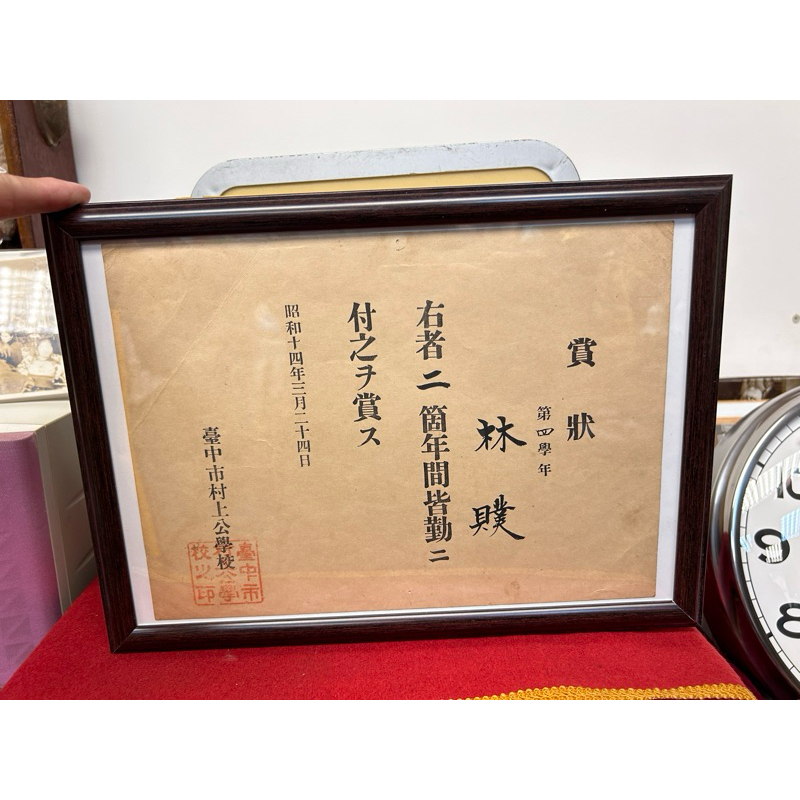 賞狀
第四學年
林 贌
右者二箇年間皆勤ニ
付之ヲ賞ス
昭和十四年三月二十四日
臺中市村上公學校
臺中市
公學
校之印
10
9
8